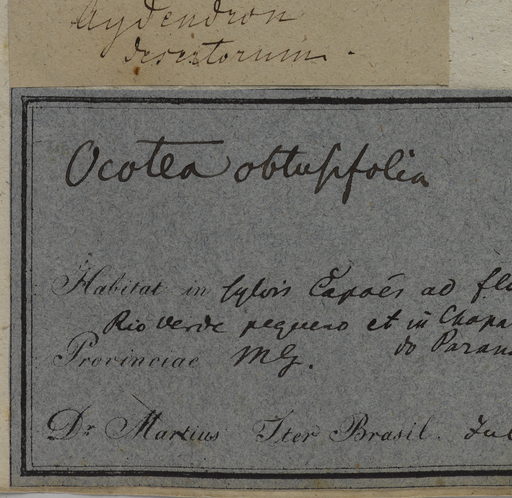 Aydendron
desertorum.
Ocotea obtusifolia
Habitat in sylvis Capoẽs ad flu
Rio verde pequeno et in Chapa
do Parana
Provinciae MG.
Dr. Martius Iter Brasil. Jul